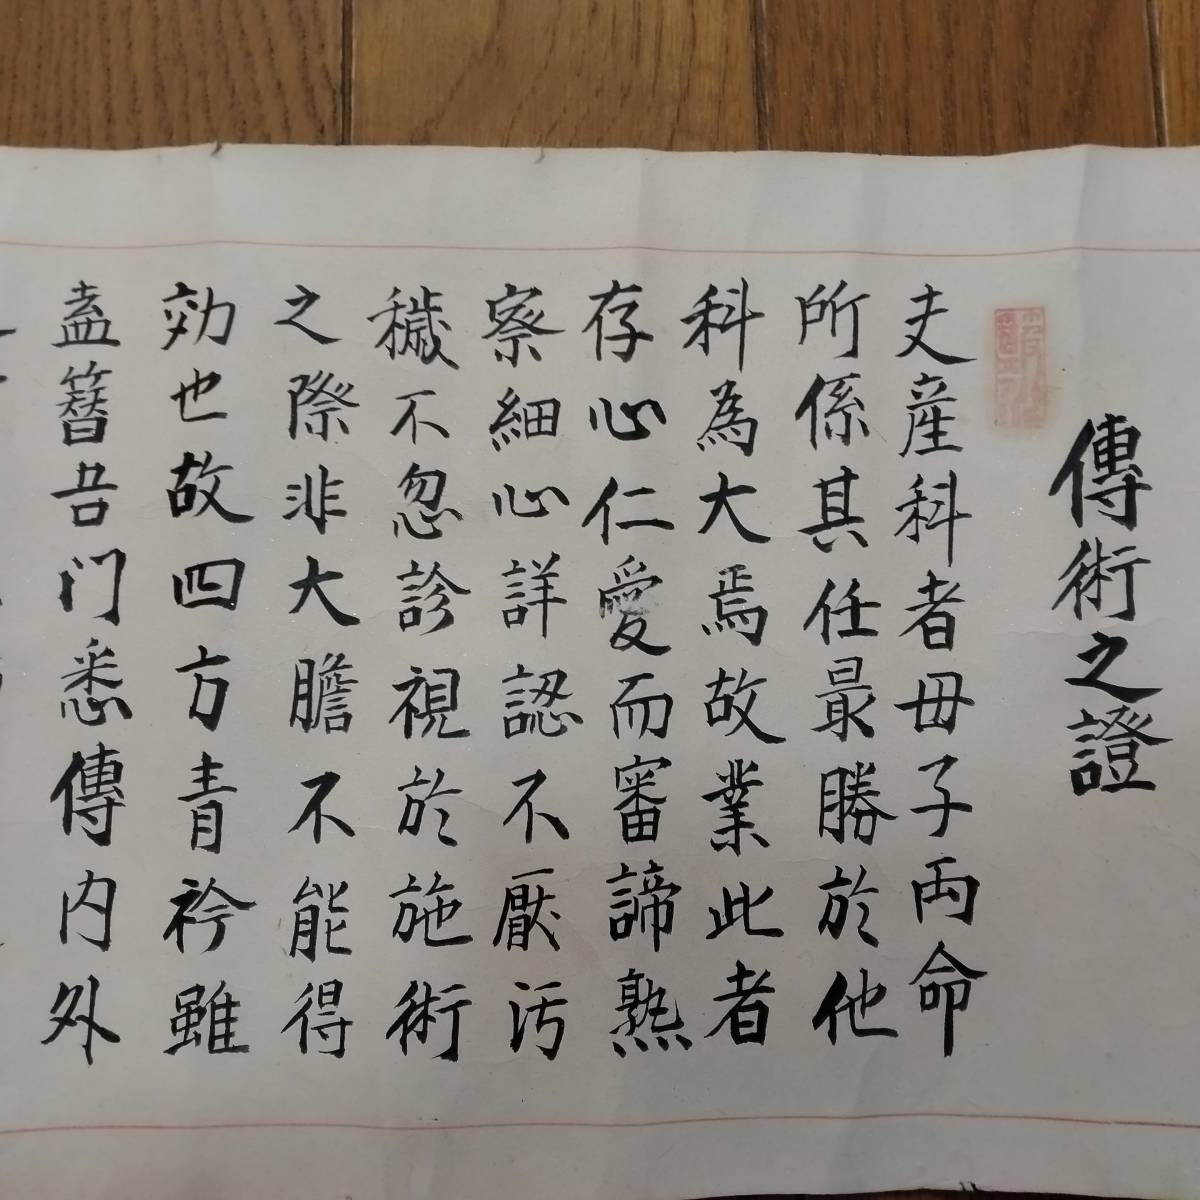 傳術之證
夫産科者毋子両命
所係其任最勝於他
科為大焉故業此者
存心仁愛而審諦熟
察細心詳認不厭污
穢不忽診視於施術
之際非大膽不能得
効也故四方青衿雖
盍簪吾门悉傳内外